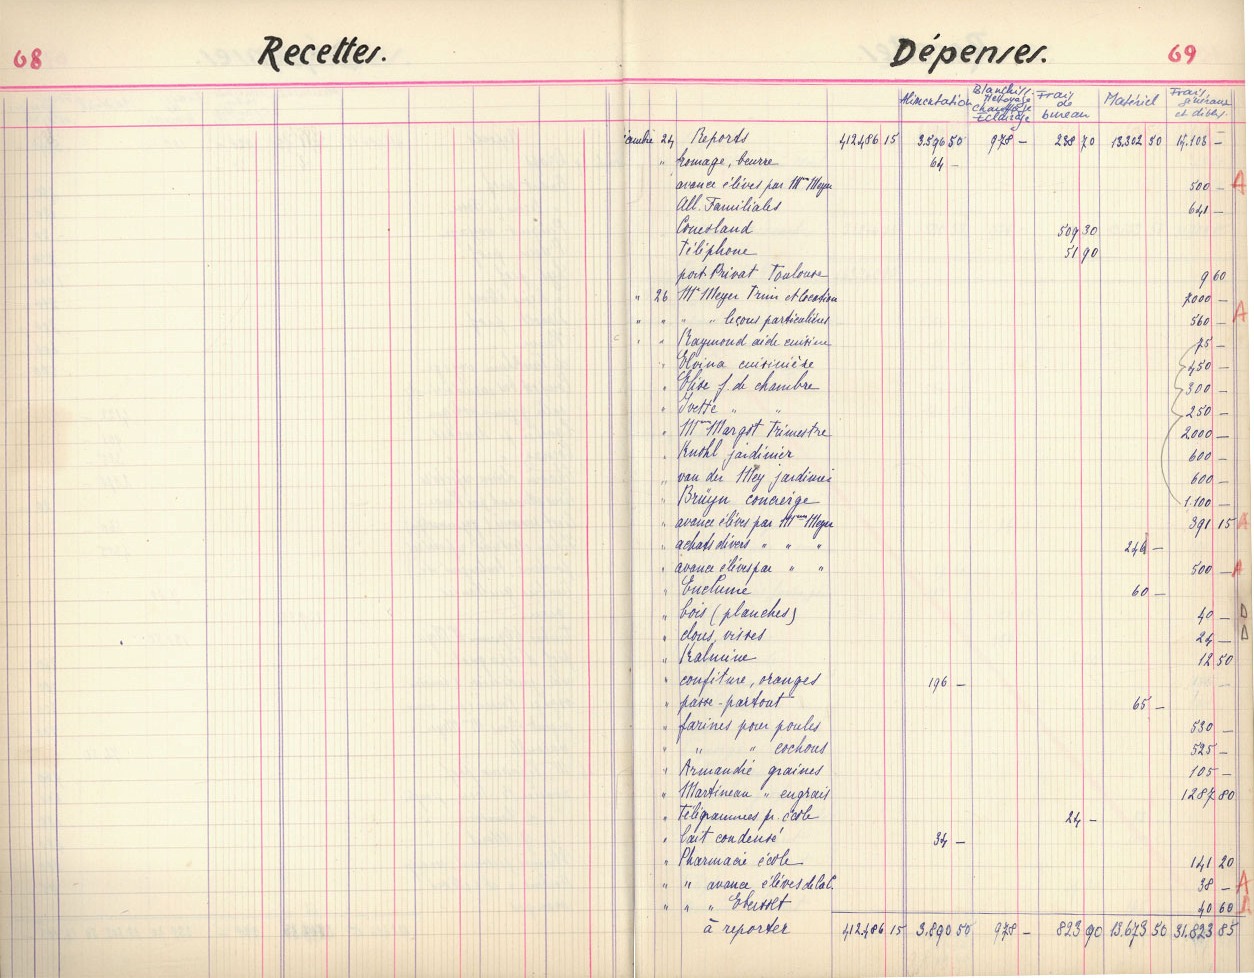 68
Recettes.
Dépenses.
69
Alimentation Blanchiss. Nettoyage Chauffage Eclairage Frais de bureau Matériel Frais généraux et divers
24 Reports 412486 15 3.596 50 978 — 238 70 13.302 50
" fromage, beurre 64 —
avance élèves par Mme Meyer 500 — A
All. Familiales 641 —
Couesland 509 30
Téléphone 51 90
port Privat Toulouse 9 60
" 26 Mr Meyer Trim et location 2000 —
" " " " leçons particulières 560 — A
" " Raymond aide cuisine 75 —
" Elvina cuisinière 450 —
" Elise f. de chambre 300 —
" Yvette " " 250 —
" Mme Margot Trimestre 2000 —
" Knohl jardinier 600 —
" van der Mey jardinier 600 —
" Brüyn concierge 1.100 —
" avance élèves par Mme Meyer 391 15 A
" achats divers " " " 246 —
" avance élèves par " " 500 — A
" Enclume 60 —
" bois (planches) 40 —
" clous, visses 24 —
" Kalmine 12 50
" confiture, oranges 196 —
" passe-partout 65 —
" farines pour poules 530 —
" " " cochons 525 —
" Armandié graines 105 —
" Martineau " engrais 1287 80
" Télégrammes pr. école 24 —
" lait condensé 34 —
" Pharmacie école 141 20
" " avance élèves de Cal. 38 — A
" " " 40 60 A
à reporter 412.486 15 3.890 50 978 — 823 90 13.673 50 31.823 85